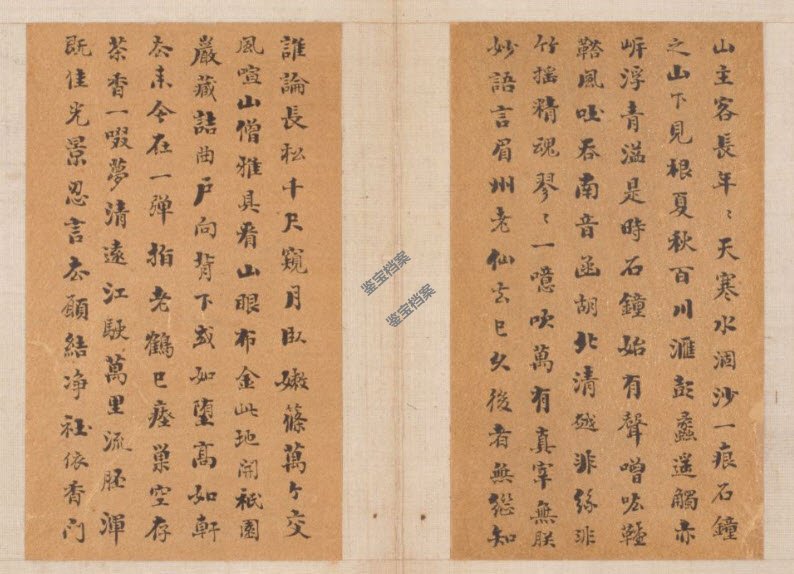 山主客長年〻天寒水涸沙一痕石鐘
之山下見根夏秋百川滙彭蠡遥觸赤
岍浮青溢是時石鐘始有聲噌吰鞺
鞳風吐吞南音函胡北清越非絲非
竹摇精魂翏〻一噫吹萬有真宰無朕
妙語言眉州老仙去已久後者無繼知
誰論長松千尺窺月臥嫩篠萬个交
風喧山僧雅具看山眼布金此地開祇園
巖藏詰曲戶向背下或如墮高如軒
去来今在一彈指老鶴已瘞巢空存
茶香一啜夢清遠江駛萬里流胚渾
既佳光景忍言去願結净社依香門
鉴宝档案
鉴宝档案